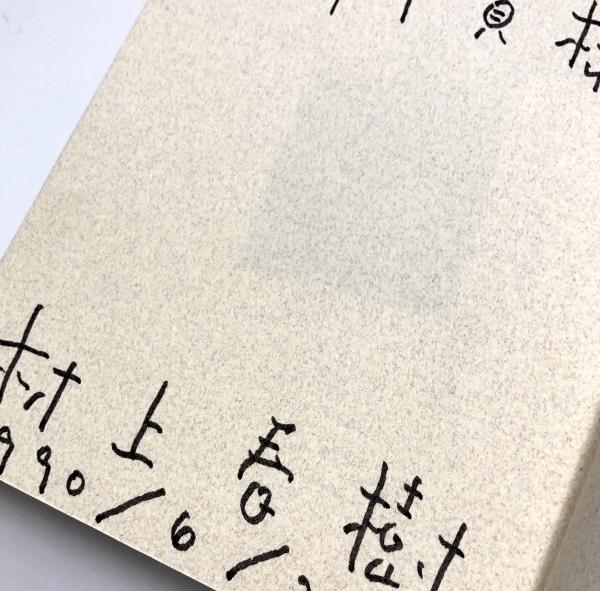 村上春樹
990/6/